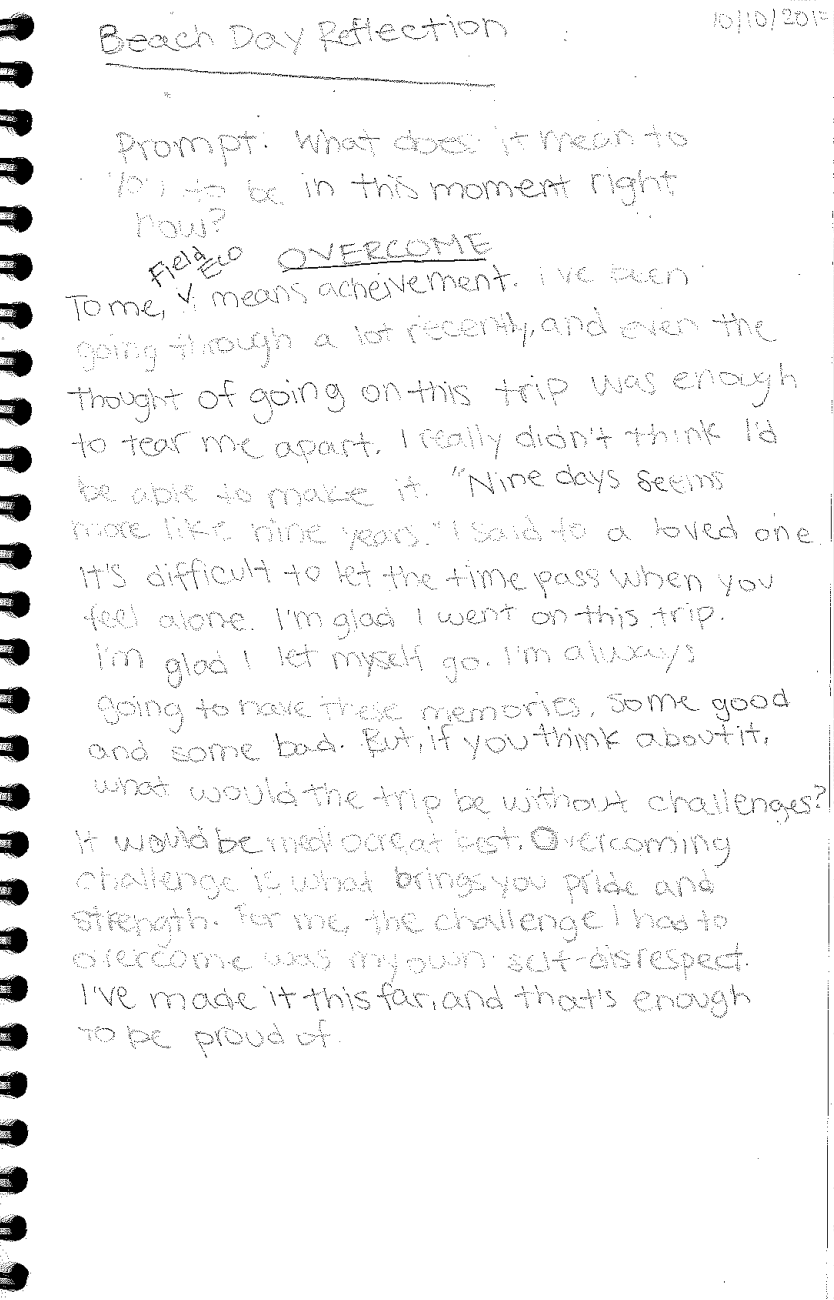 Beach Day Reflection
10/10/201
Prompt: What does it mean to
to be in this moment right
now?
OVERCOME
Field Eco
To me, means acheivement. i've been
going through a lot recently, and even the
thought of going on this trip was enough
to tear me apart. I really didn't think I'd
be able to make it. "Nine days seems
more like nine years." I said to a loved one
It's difficult to let the time pass when you
feel alone. I'm glad I went on this trip.
I'm glad I let myself go. I'm always
going to have these memories, some good
and some bad. But, if you think about it,
what would the trip be without challenges?
It would be mediocre at best. Overcoming
challenge is what brings you pride and
strength. For me, the challenge I had to
overcome was my own self-disrespect.
I've made it this far, and that's enough
to be proud of.